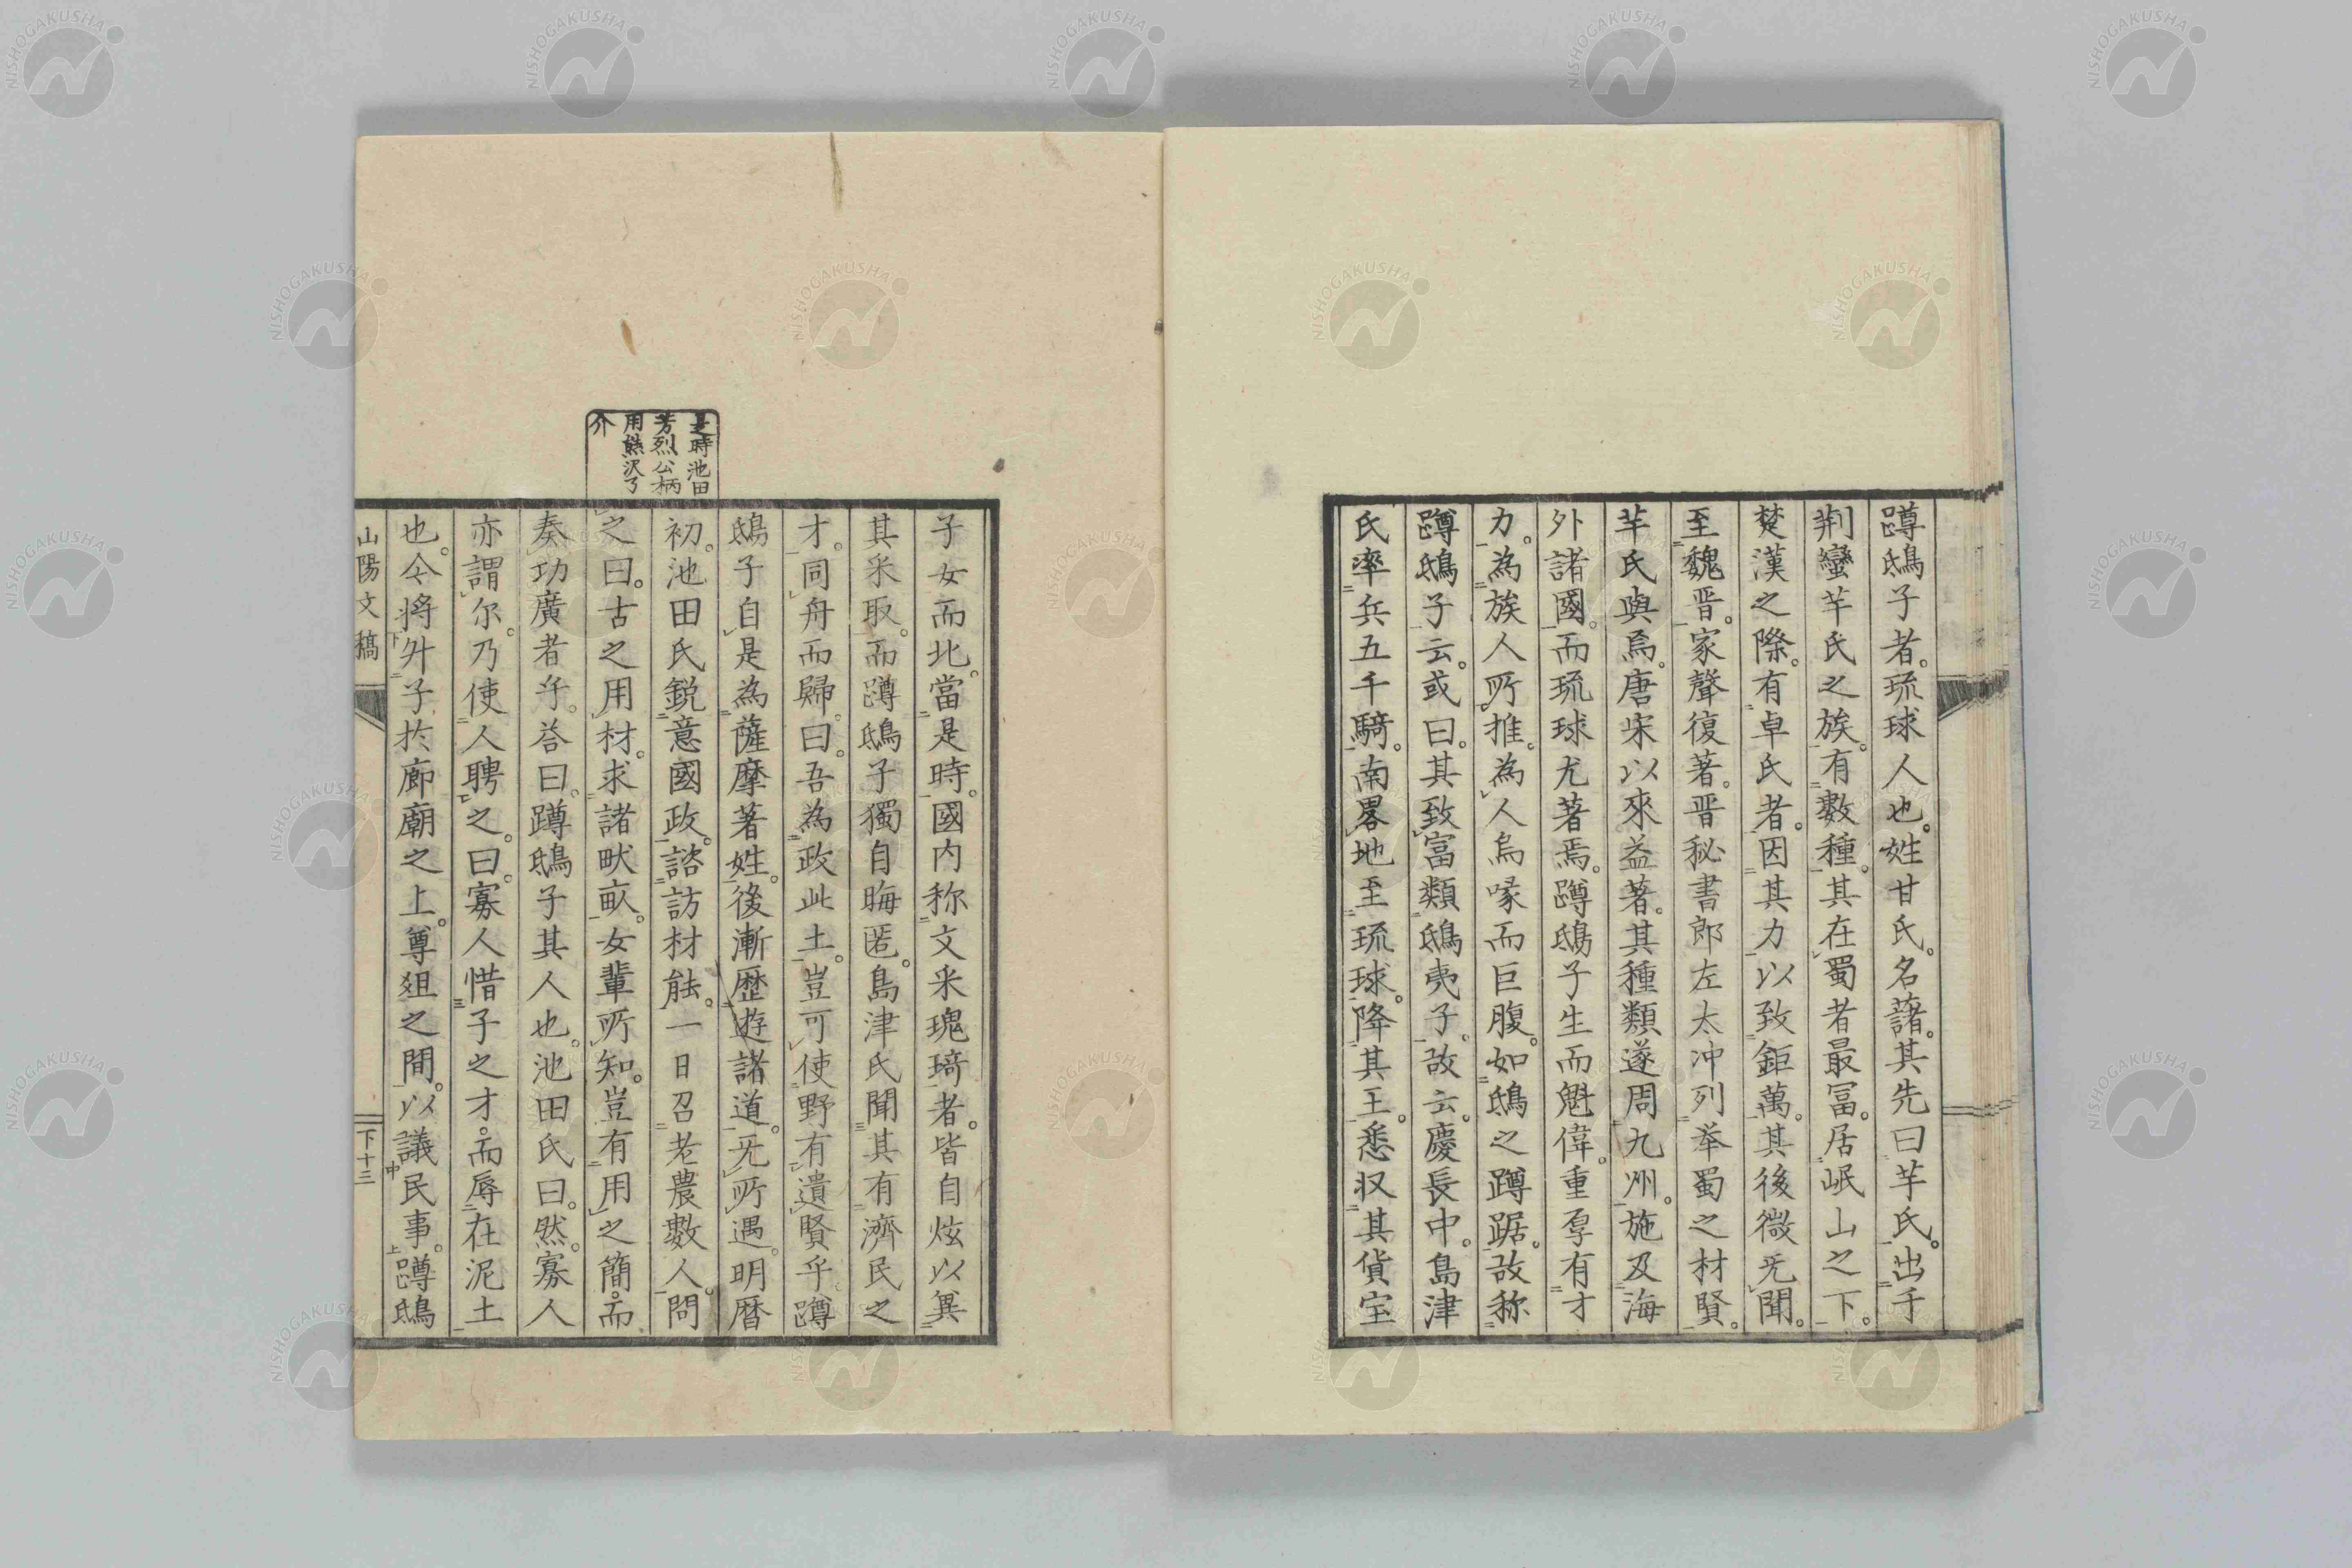 蹲鴟子者。琉球人也。姓甘氏。名藷。其先曰芋氏。出于
荆蠻芊氏之族。有數種。其在蜀者最冨。居岷山之下。
楚漢之際。有卓氏者。因其力以致鉅萬。其後微旡聞。
至魏晋。家聲復著。晋秘書郎左太冲列举蜀之材賢。
芋氏與焉。唐宋以來益著。其種類遂周九州。施及海
外諸國。而琉球尤著焉。蹲鴟子生而魁偉。重厚有才
力。為族人所推。為人烏喙而巨腹。如鴟之蹲踞。故称
蹲鴟子云。或曰。其致富類鴟夷子。故云。慶長中。島津
氏率兵五千騎。南畧地至琉球。降其王。悉収其貨宝
子女而北。當是時。國内称文采瑰琦者。皆自炫以異
其采取。而蹲鴟子獨自晦匿。島津氏聞其有濟民之
才。同舟而歸。曰。吾為政此土。豈可使野有遺賢乎。蹲
鴟子自是為薩摩著姓。後漸歴遊諸道。旡所遇。明暦
初。池田氏鋭意國政。諮訪材能。一日召老農數人。問
之曰。古之用材。求諸畎畝。女輩所知。豈有用之簡。而
奏功廣者乎。答曰。蹲鴟子其人也。池田氏曰。然。寡人
亦謂尓。乃使人聘之。曰。寡人惜子之才。而辱在泥土
也。今将升子於廊廟之上。尊俎之間。以議民事。蹲鴟
是時池田
芳烈公柄
用熊沢了
介
山陽文稿
下十三
NISHOGAKUSHA